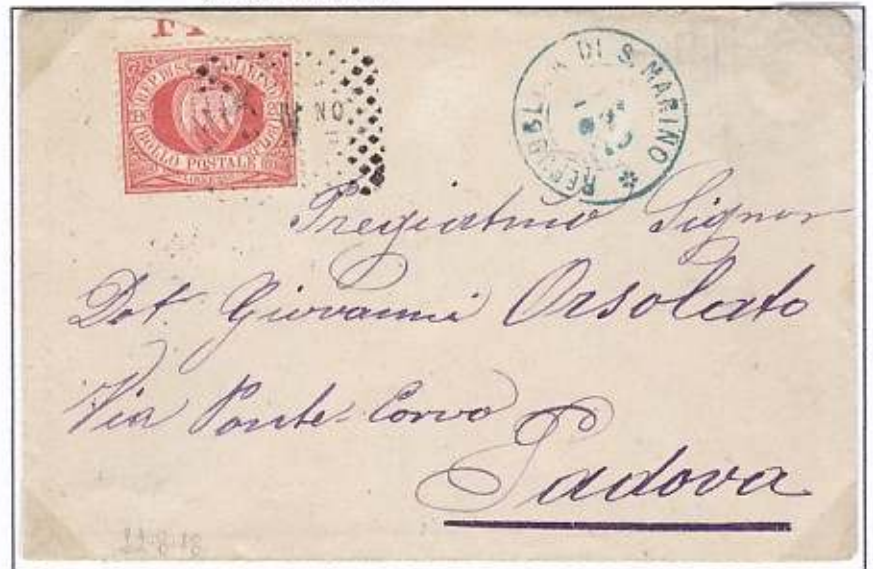 REP. DI S. MARINO
BOLLO POSTALE
REPUBBLICA DI S. MARINO
Pregiatmo Signor
Dot. Giovanni Orsolato
Via Ponte-Corvo
Padova